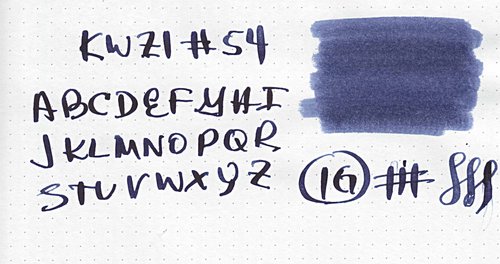 KWZI #54
ABCDEFGHI
JKLMNOPQR
STUVWXYZ
IG ###